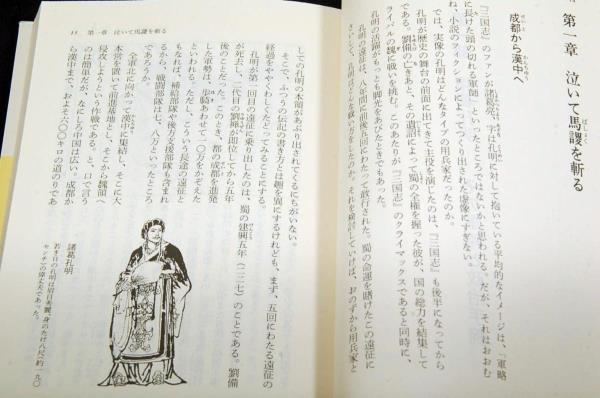 第一章 泣いて馬謖を斬る
成都から漢中へ
『三国志』のファンが諸葛亮、字は孔明に対して抱いている平均的なイメージは、「軍略
に長けた頭の切れる軍師」といったところではないかと思われる。だが、それはおおむ
ね、小説のフィクションによってつくり出された虚像にすぎない。
では、実像の孔明はどんなタイプの用兵家だったのか。
孔明が歴史の舞台の前面に出てきて主役を演じたのは、『三国志』も後半になってから
である。劉備の亡きあと、その遺詔によって蜀の全権を握った彼が、国の総力を結集して
ライバルの魏に戦いを挑む。このあたりが『三国志』のクライマックスであると同時に、
孔明の活躍がもっとも脚光をあびたときでもあった。
遠征は、八年間に前後五回にわたって敢行された。蜀の命運を賭けたこの遠征に
孔明がどんな戦いをしたのか、それを検討していけば、おのずから用兵家と
11 第一章 泣いて馬謖を斬る
しての孔明の本領があぶり出されてくるにちがいない。
そこで、ふつうの伝記の書き方とは趣を異にするけれども、まず、五回にわたる遠征の
経過をややくわしくたどってみることにする。
孔明が第一回目の遠征に乗り出したのは、蜀の建興五年(二二七)のことである。劉備
が死去し、二代目の劉禅が即位してから五年
後のことだった。このとき、都の成都を進発
した軍勢は、歩騎あわせて一〇万をかぞえた
といわれる。ただし、こういう長途の遠征と
もなれば、補給部隊や後方支援部隊も含まれ
るから、戦闘部隊は七、八万といったところ
であろうか。
全軍北に向かって漢中に集結し、そこに大
本営を置いて前進基地とし、そこから魏領へ
侵攻しようという作戦である。と、口で言う
のは簡単だが、なにしろ中国は広い。成都か
ら漢中まで、およそ六〇〇キロの道のりであ
諸葛孔明
若き日の孔明は眉目秀麗、身のたけ八尺(約一九〇
センチ)の偉丈夫であった。